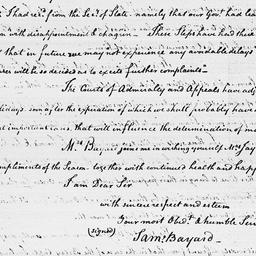 I had rec.d from the Sec.y of State namely that our Gov.t had
with disappointment & chagrin — These Steps have had their
that in future we may not experience any avoidable delays
will be so decided as to excite further complaints —
The Courts of Admiralty and Appeals have adj
holidays. soon after the expiration of which we shall probably have
important causes, that will influence the determination of
Mrs. B joins me in wishing yourself Mrs. Jay
compliments of the Season. together with continued health and happ
I am Dear Sir
with sincere respect and esteem
Your most Obed.t & humble Ser
(signed)
Sam.l Bayard —